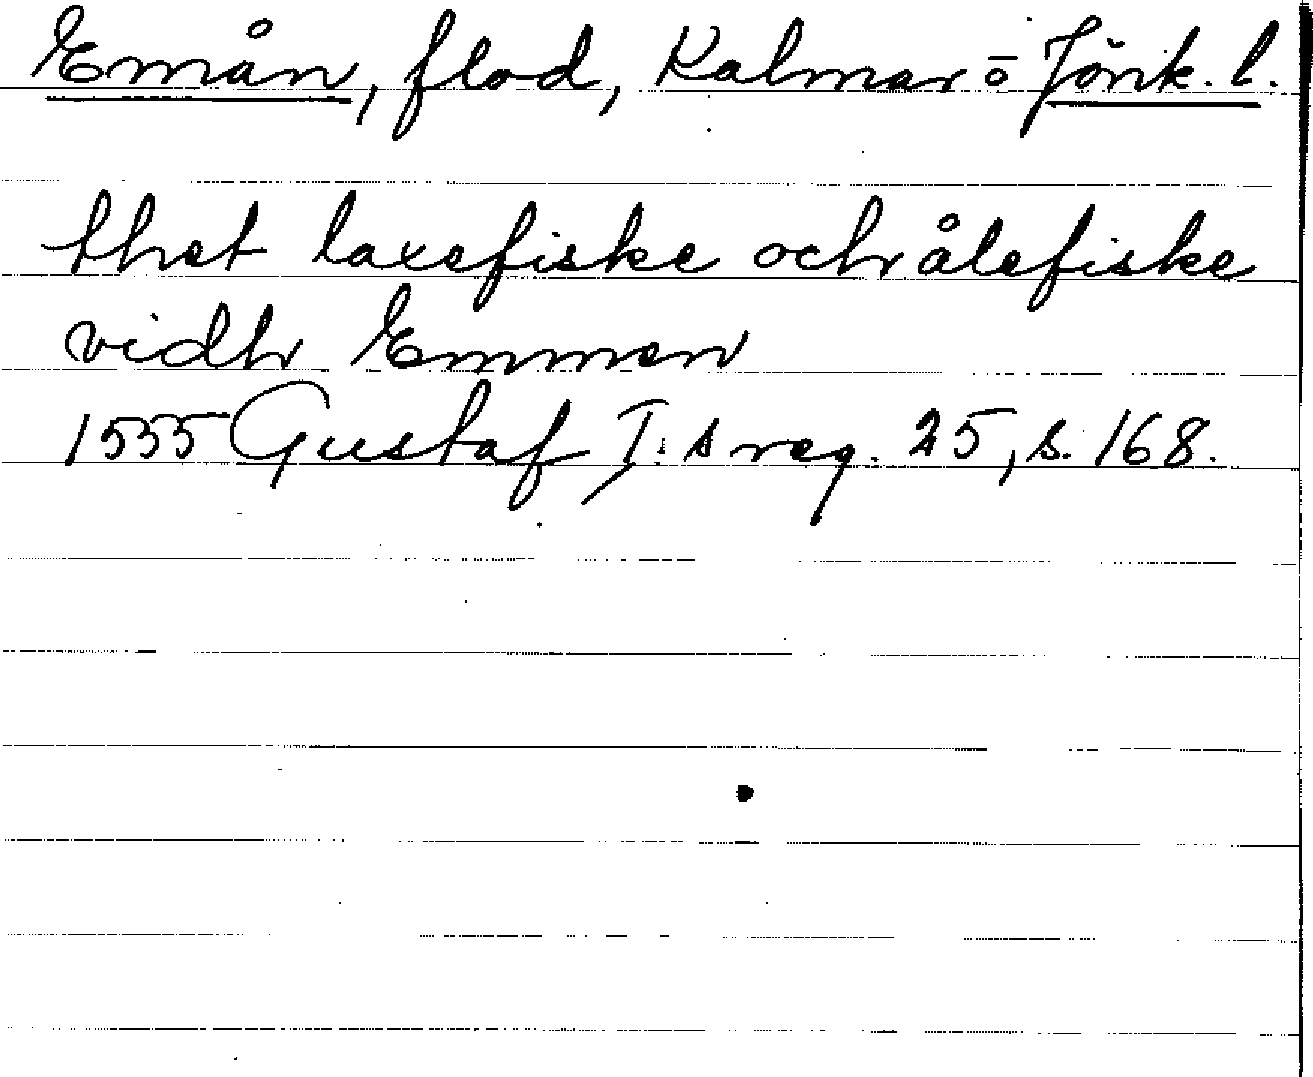 Emån, flod, Kalmar o Jönk. l.
thet laxefiske och ålefiske
vidh Emmen
1555 Gustaf I:s reg. 25, s. 168.